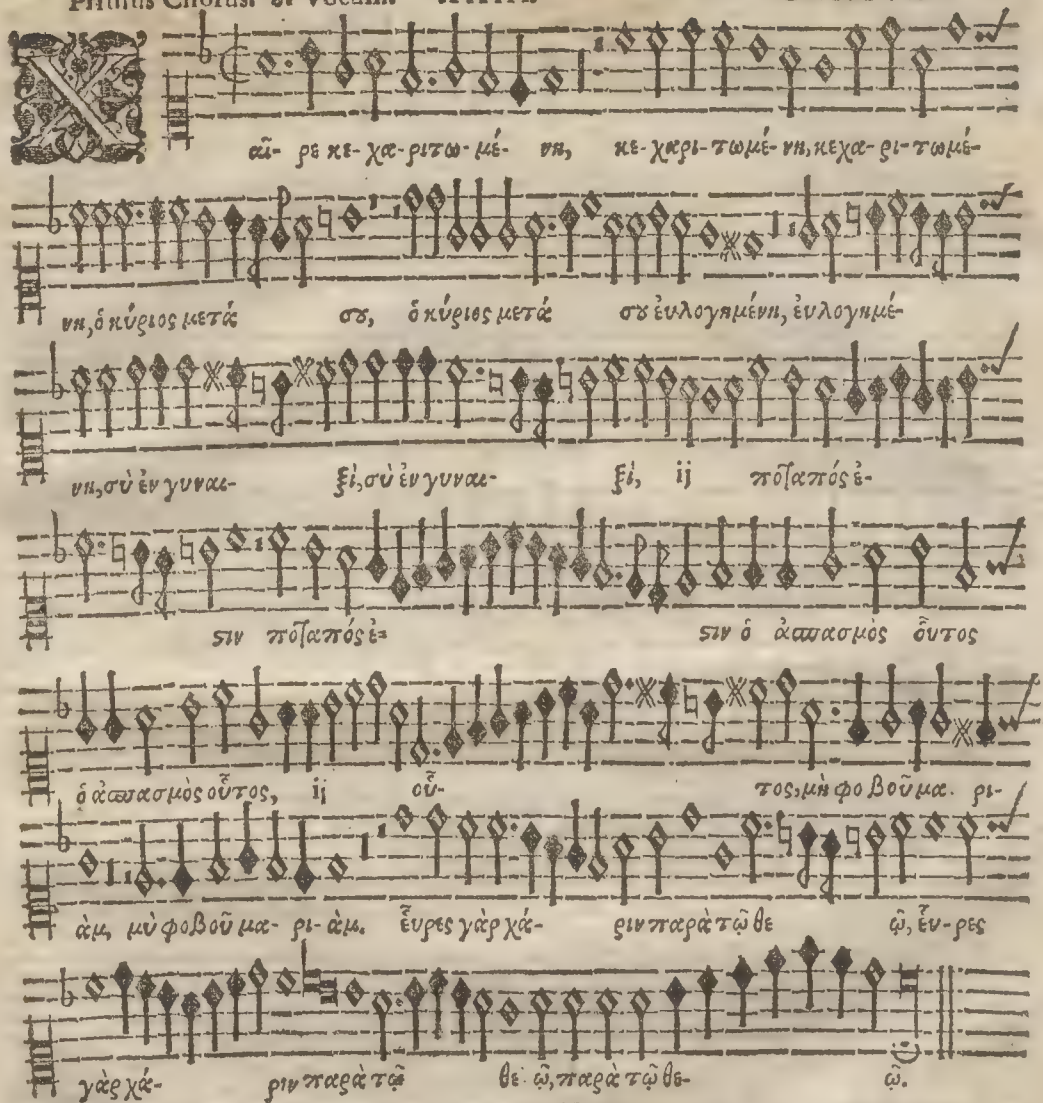 Primus Chorus. 8. Vocum.
Χ αῖ- ρε κε- χα- ριτω- μέ- νη, κε- χαρι- τωμέ- νη, κεχα- ρι- τωμέ-
νη, ὁ κύριος μετά σου, ὁ κύριος μετά σου ἐυλογημένη, ἐυλογημέ-
νη, σὺ ἐν γυναι- ξὶ, σὺ ἐν γυναι- ξὶ, ij ποταπός ἐ-
στιν ποταπός ἐ= στιν ὁ ἀσπασμὸς οὗτος
ὁ ἀσπασμὸς οὗτος, ij οὗ- τος, μὴ φο βοῦ μα. ρι-
ὰμ, μὺ φοβοῦ μα- ρι- ὰμ. ἕυρες γὰρ χά- ριν παρὰ τῷ θε ῷ, ἕυ- ρες
γὰρ χά- ριν παρὰ τῷ θε ῷ, παρὰ τῷ θε- ῷ.